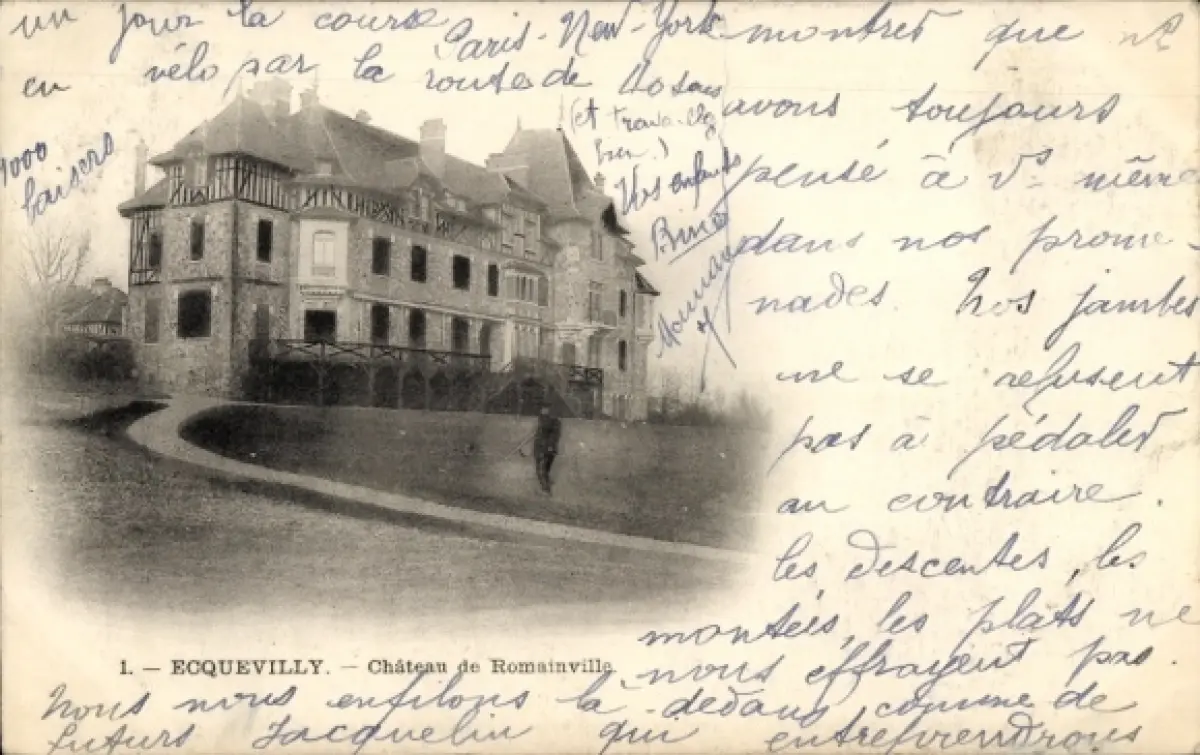 montrer que ne
avons toujours
pensé à vs même
dans nos prome-
nades. Nos jambes
ne se refusent
pas à pédaler
au contraire.
les descentes, les
montées, les plats ne
nous effrayent pas.
1. — ECQUEVILLY. — Château de Romainville.
Nous nous enfilons là-dedans comme de
futurs Jacquelin qui entreprendrons
un jour la course Paris-New-York
en vélo par la route de
(et
bien.)
Vos enfants
1000
baisers